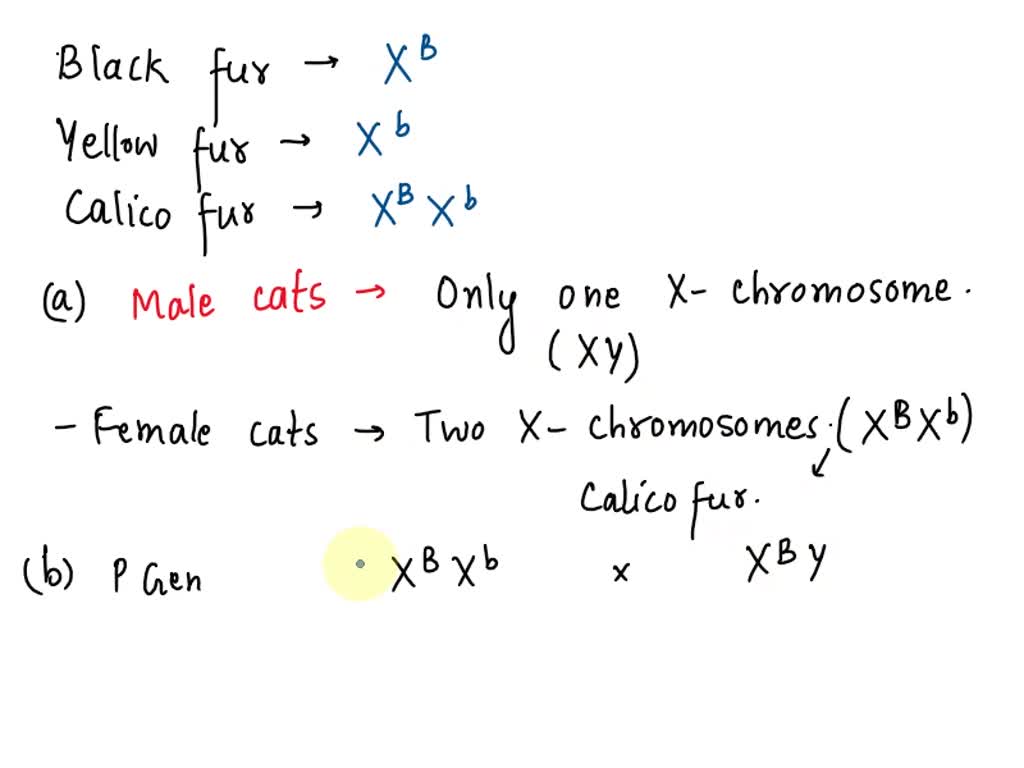 Black fur → X^B
Yellow fur → X^b
Calico fur → X^B X^b
(a) Male cats → Only one X- chromosome.
(XY)
- Female cats → Two X- chromosomes. (X^B X^b)
Calico fur.
(b) P Gen X^B X^b x X^B Y